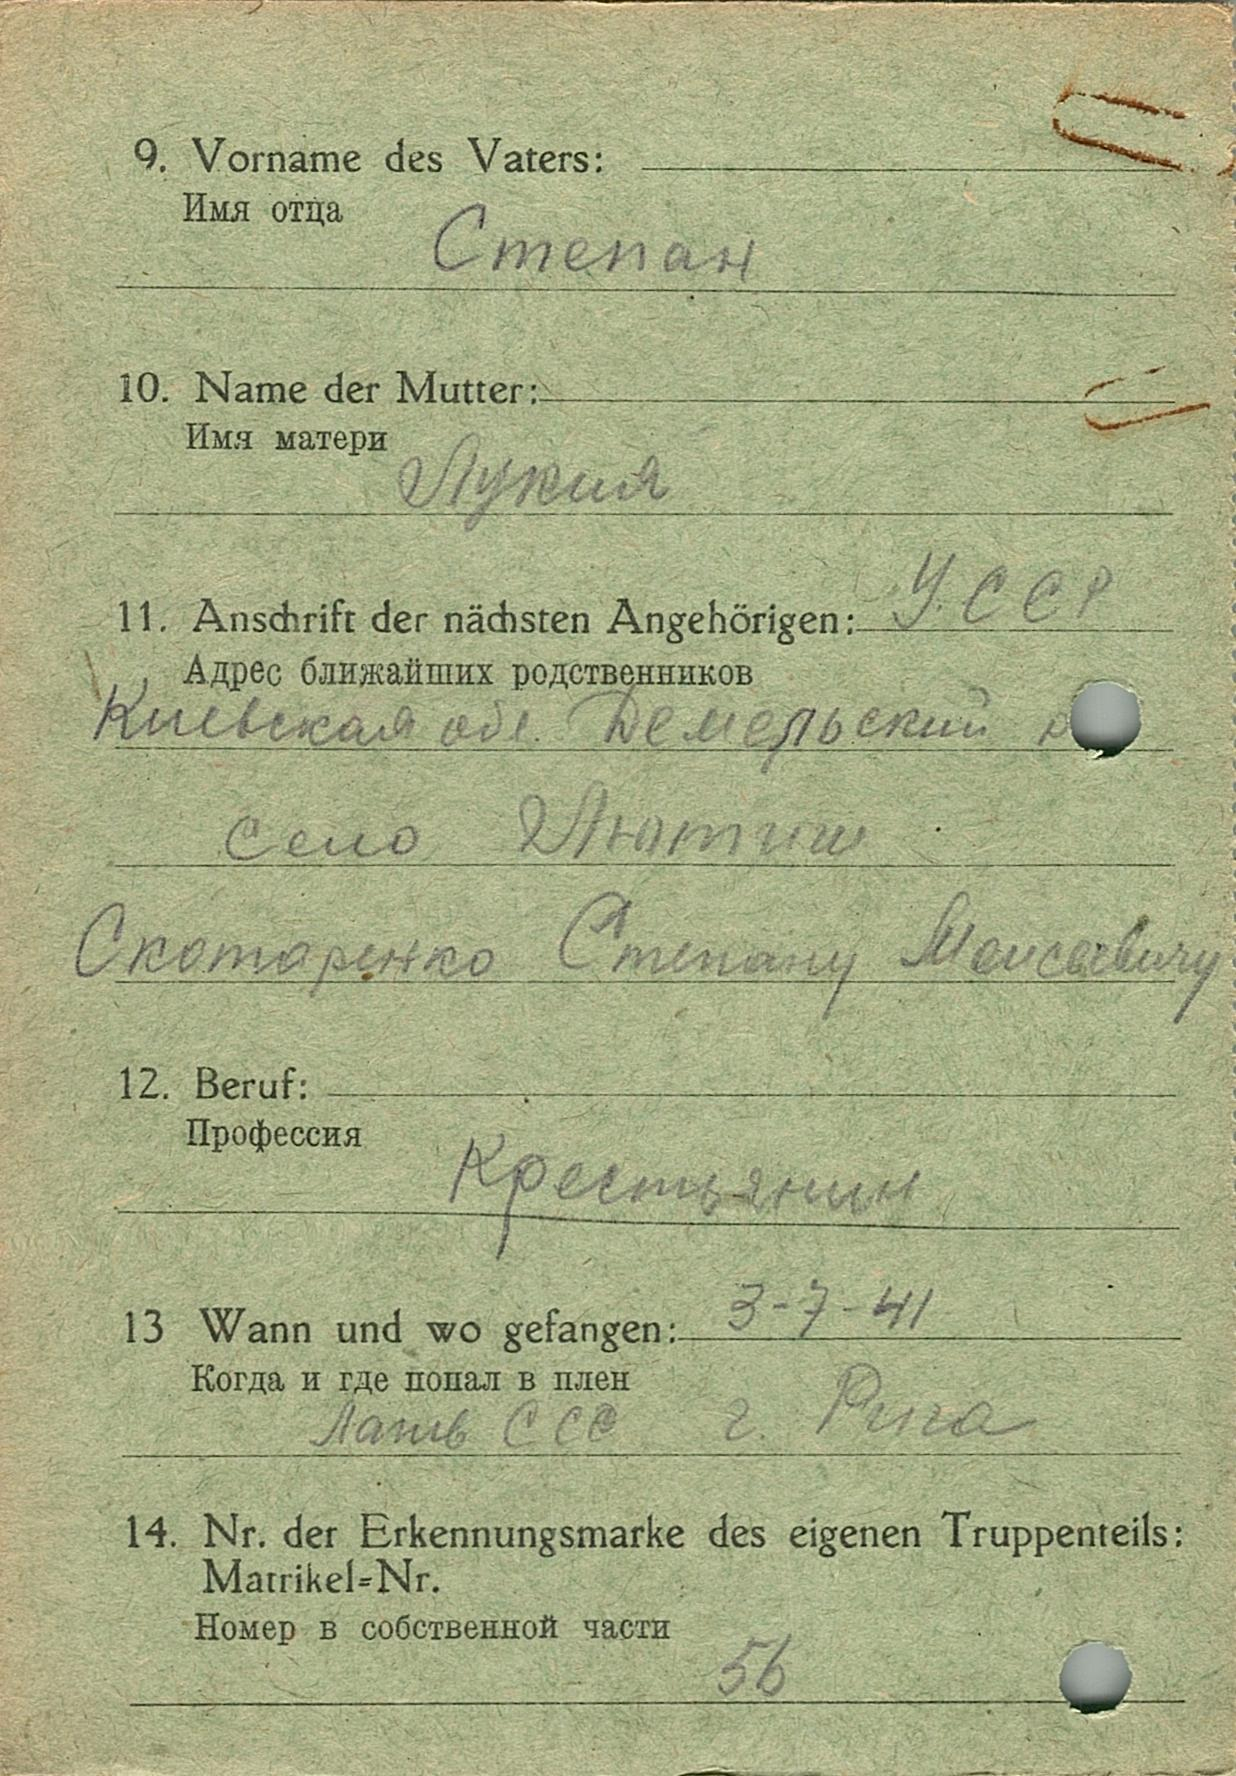 9. Vorname des Vaters:
Имя отца
Степан
10. Name der Mutter:
Имя матери
Лукия
У.ССР
11. Anschrift der nächsten Angehörigen:
Адрес ближайших родственников
Киевская обл. Демерьский р
село Лютиш
Скотаренко Степану Моисеевичу
12. Beruf:
Профессия
Крестьянин
13 Wann und wo gefangen: 3-7-41
Когда и где попал в плен
Латв ССС г. Рига
14. Nr. der Erkennungsmarke des eigenen Truppenteils:
Matrikel=Nr.
Номер в собственной части
56